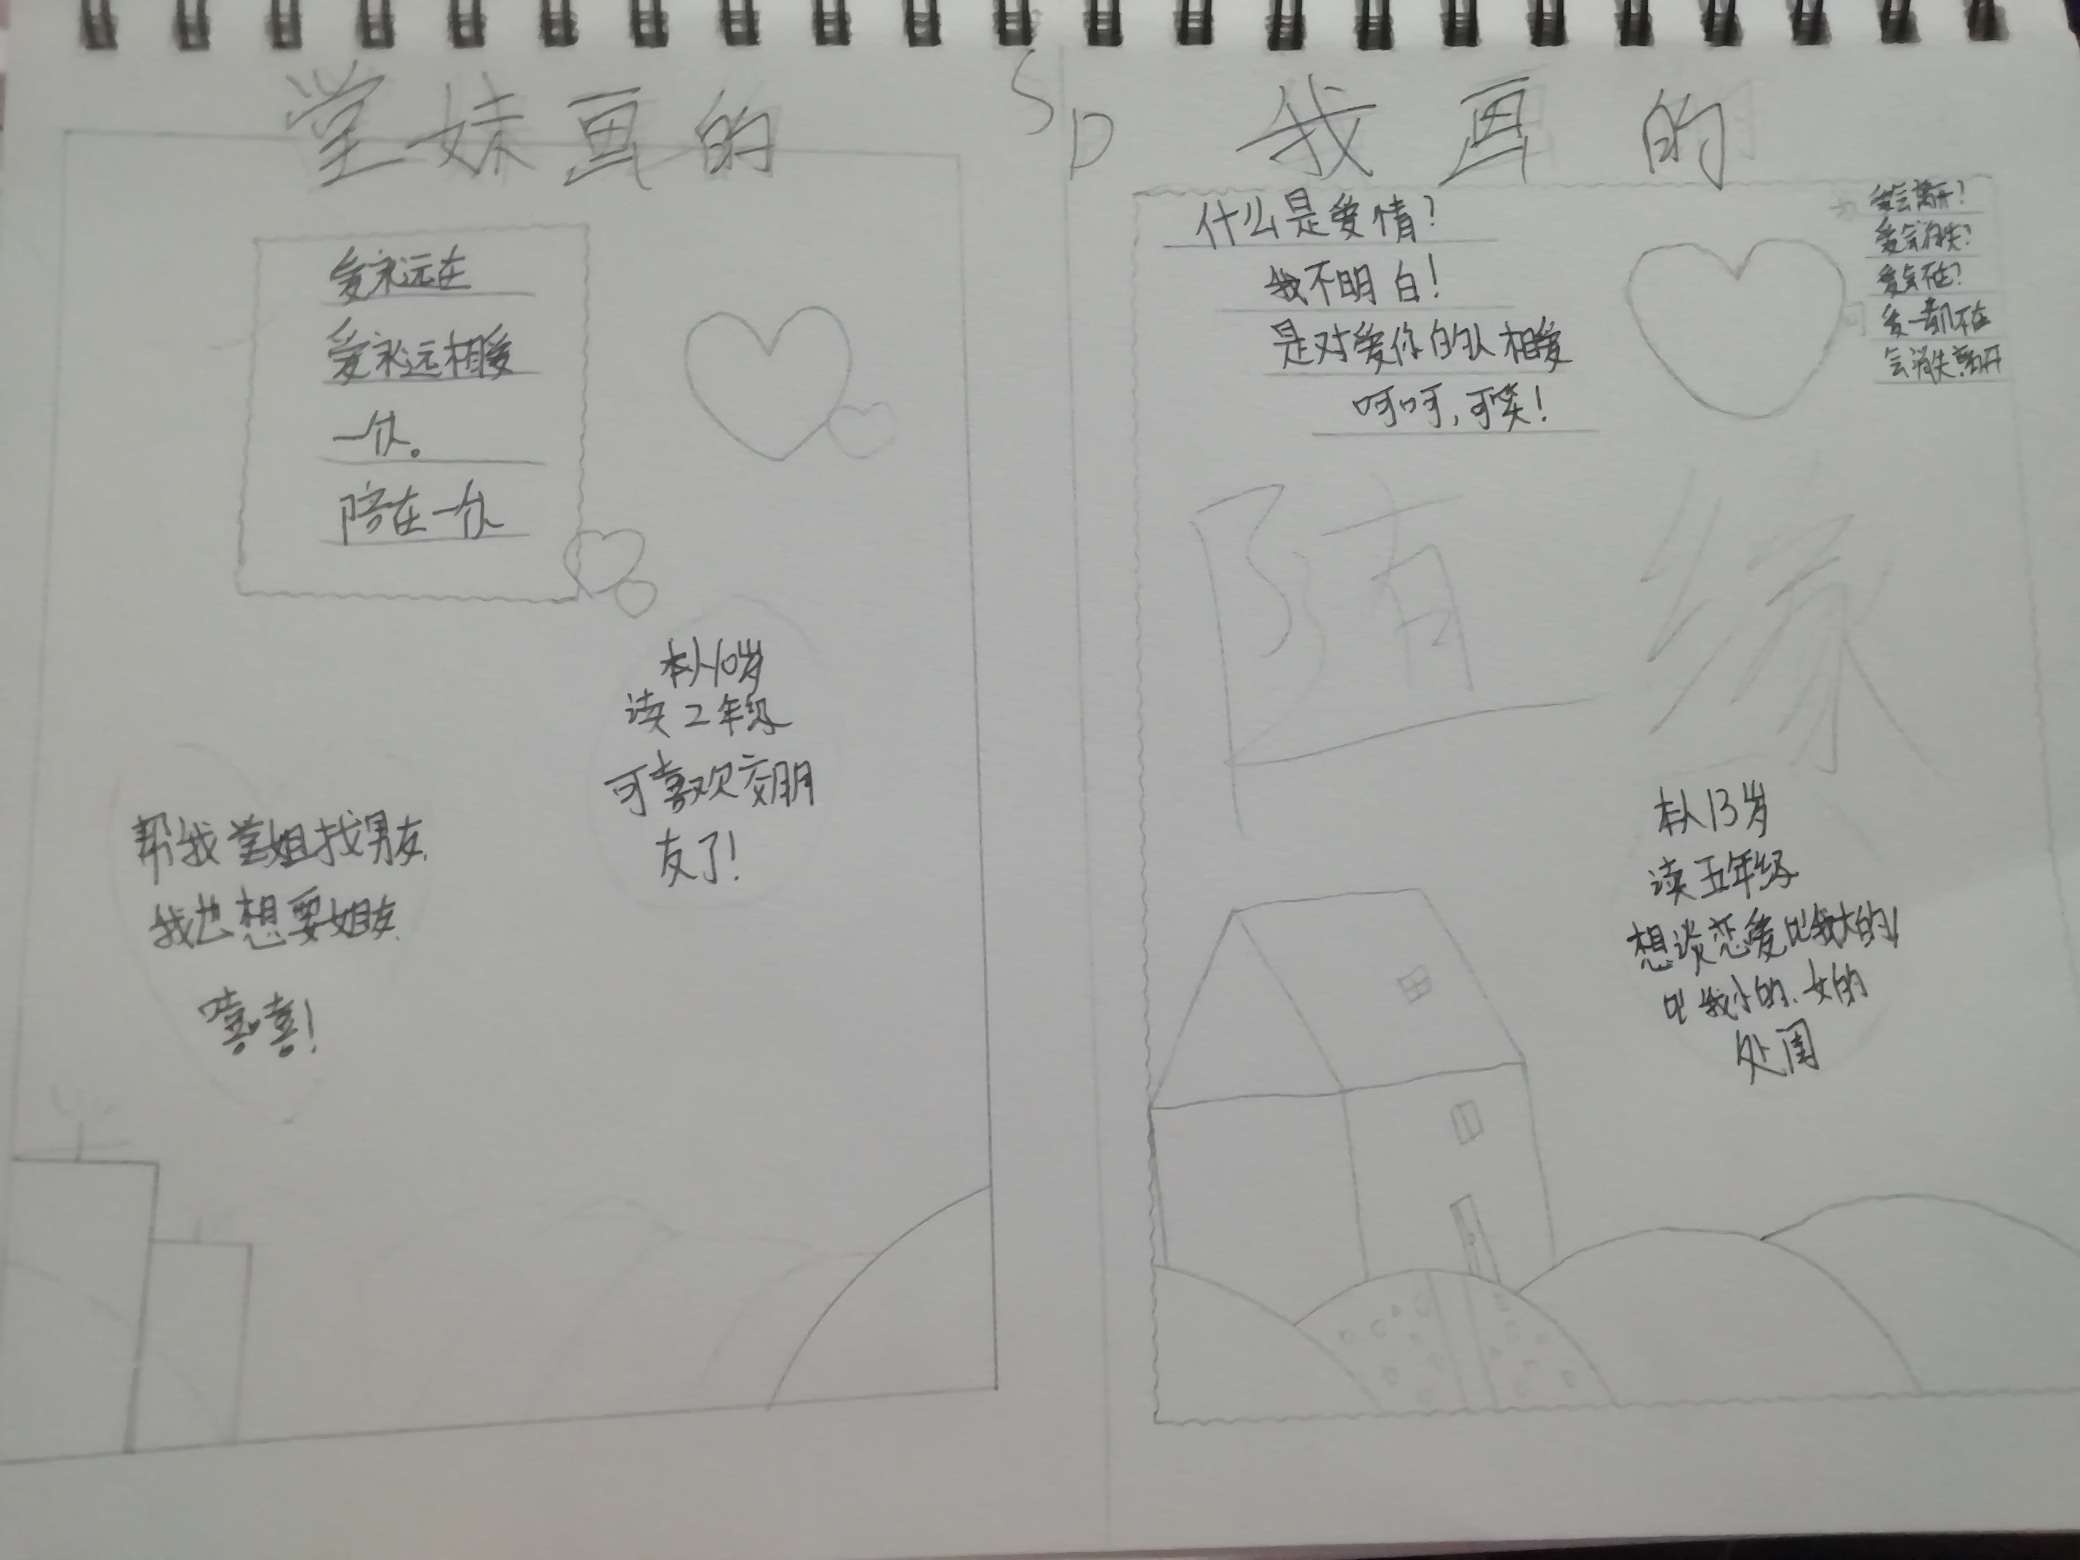 堂妹画的
爱永远在
爱永远相爱
一个人。
陪在一个人
本人10岁
读2年级
可喜欢交朋
友了!
帮我堂姐找男友
我也想要姐友
嘻嘻!
SD
我画的
什么是爱情?
我不明白!
是对爱你的人相爱
呵呵,可笑!
爱会离开?
爱会消失?
爱会不在?
爱一部不在
会消失离开
随缘
本人13岁
读五年级
想谈恋爱比我大的
比我小的、女的
处闺